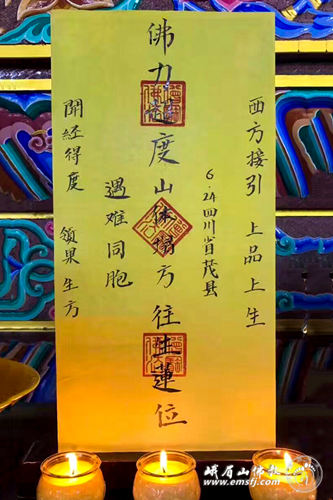 西方接引 上品上生
6.24四川省茂县
佛力超度山体塌方往生蓮位
遇难同胞
闻经得度 领果生方
峨眉山佛教
www.emsfj.com